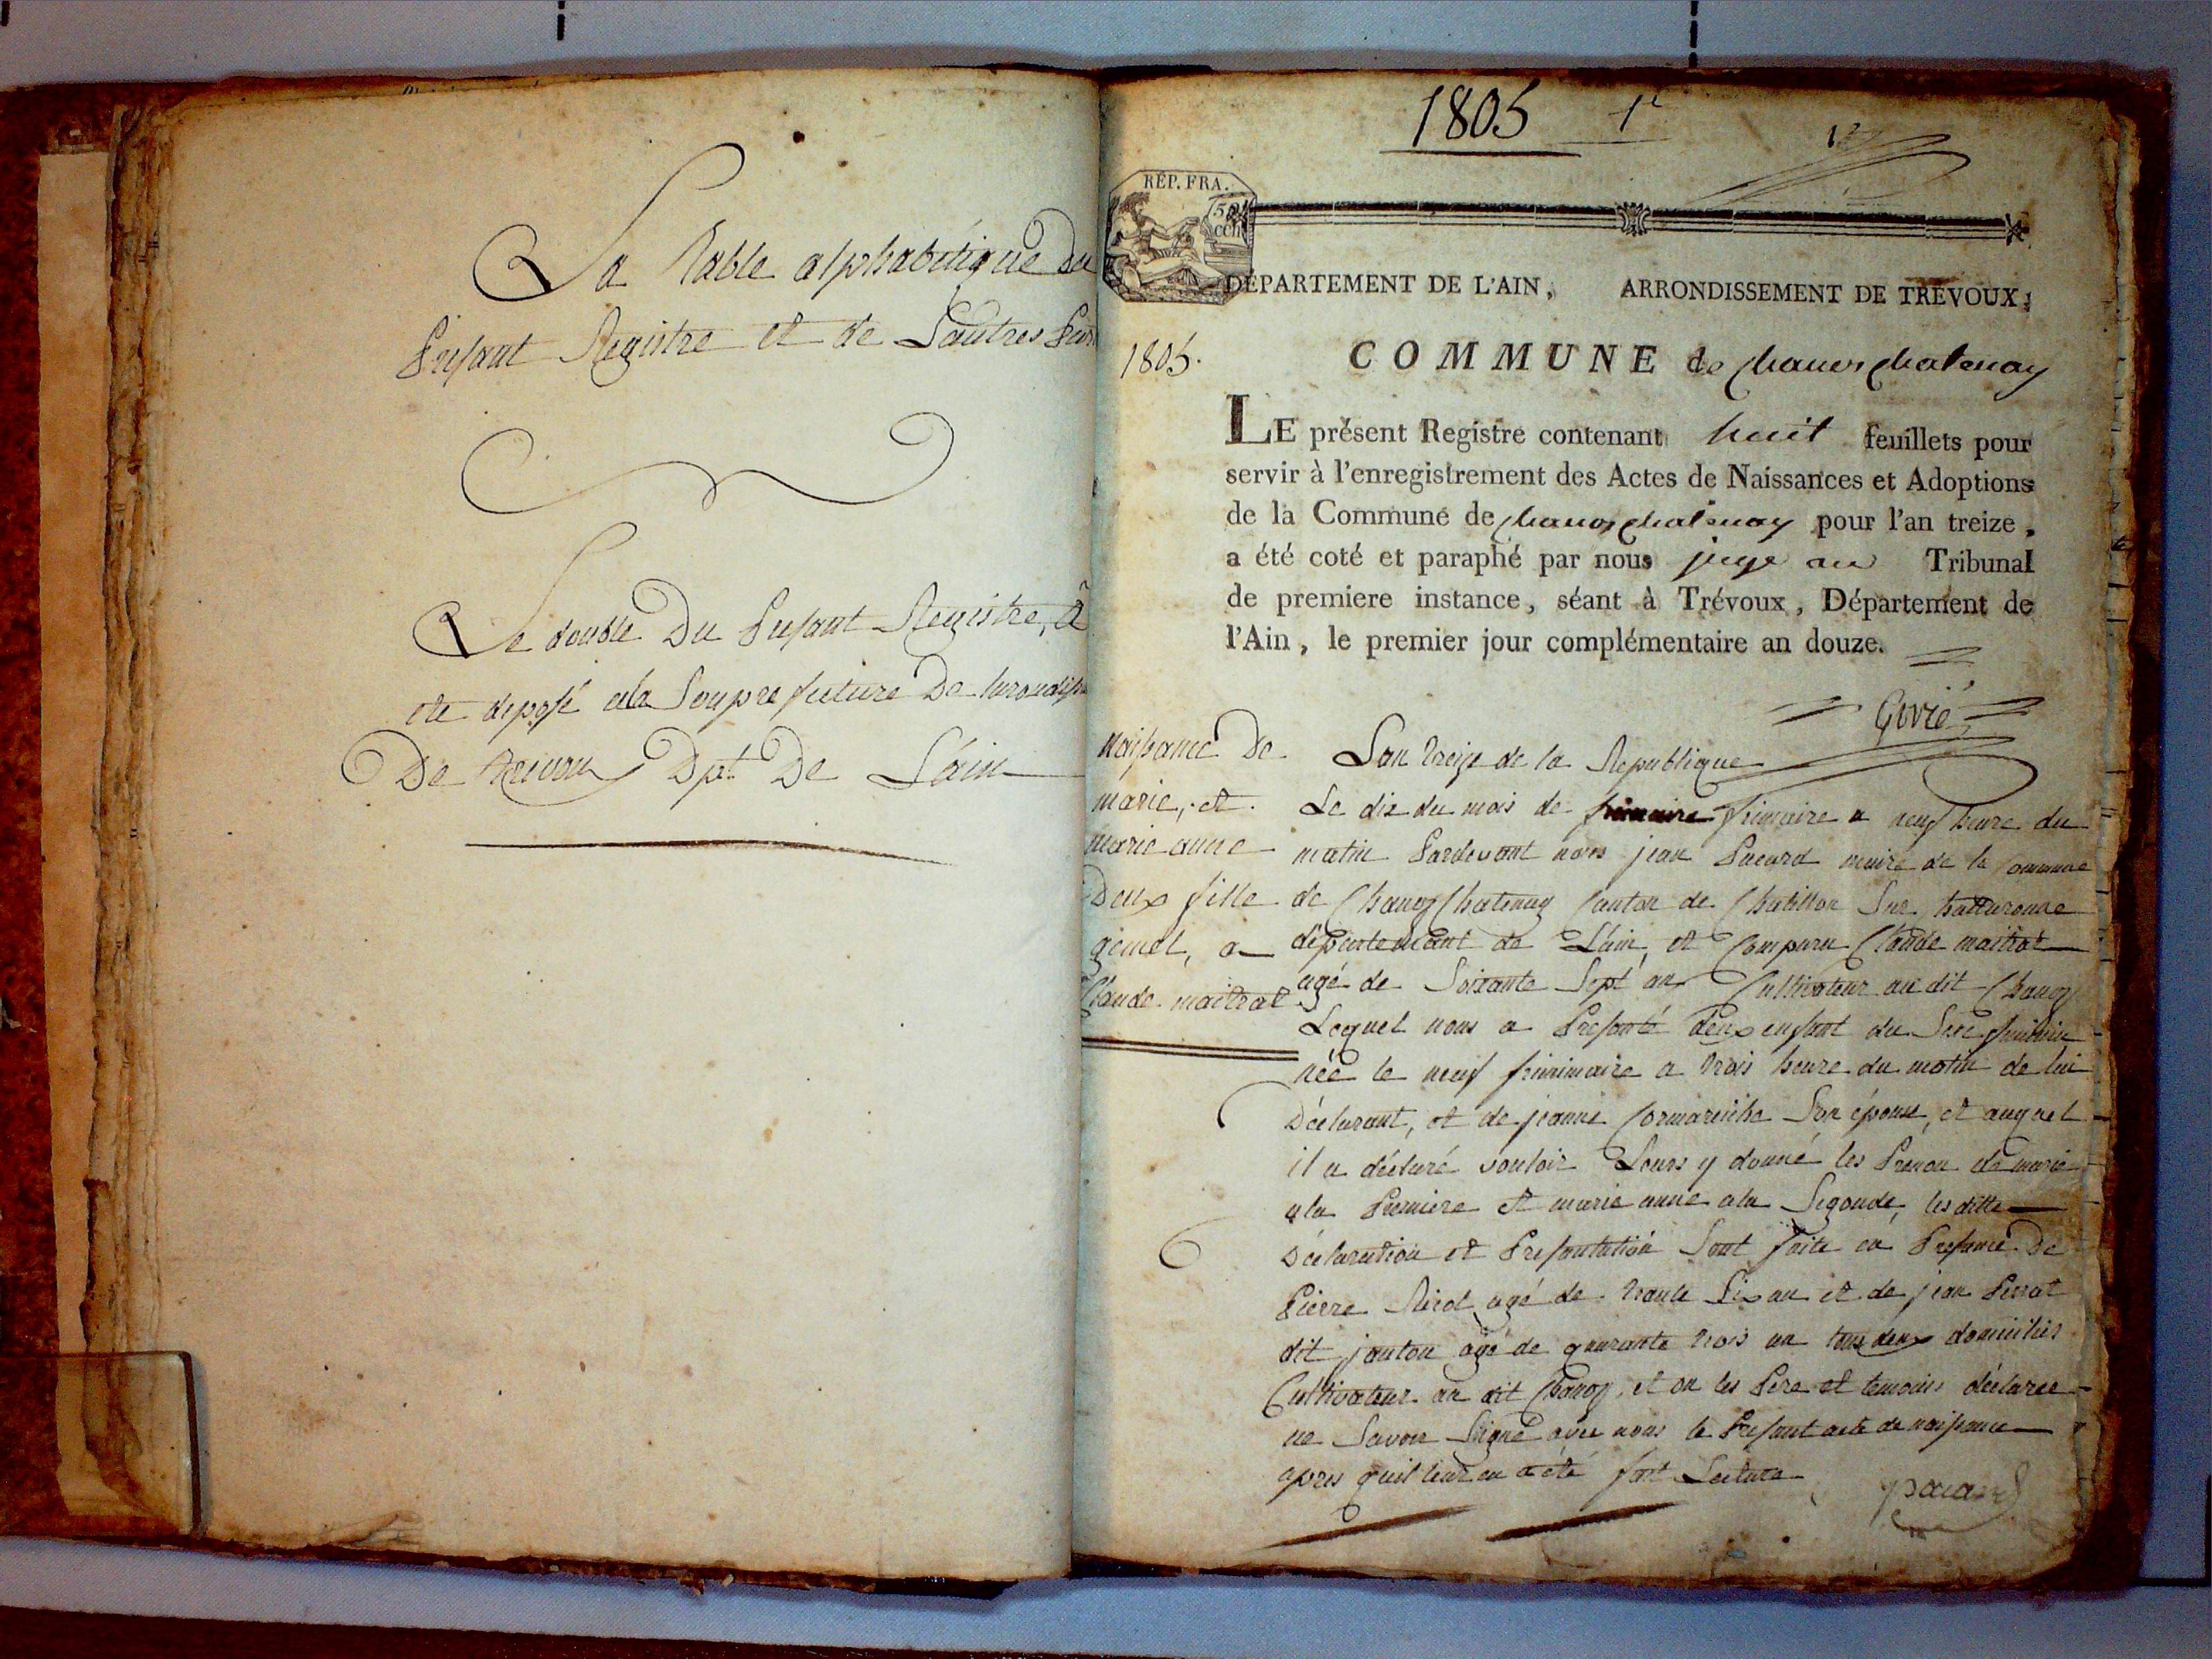 La Table alphabétique du
Présant Registre et de Lautres Par
Le double Du Présant Registre, à
été deposé ala Soupre fecture De larondiss
De trevoux Dpt De L'áin
1805 1r
RÉP. FRA.
DÉPARTEMENT DE L'AIN, ARRONDISSEMENT DE TRÉVOUX;
1805.
COMMUNE de chanoz chatenay
LE présent Registre contenant huit feuillets pour
servir à l'enregistrement des Actes de Naissances et Adoptions
de la Commune de chanoz chatenay pour l'an treize,
a été coté et paraphé par nous juge au Tribunal
de premiere instance, séant à Trévoux, Département de
l'Ain, le premier jour complémentaire an douze.
naissance De
marie, et
marie anne
Deux fille
gemel, a
Claude maitrat
Lan treize de la Republique
Le dix du mois de frimaire frimaire a neuf heure du
matin Pardevant nous jean Pacard maire de la Commune
de Chanoz Chatenay Canton de Chatillon Sur
département de L'ain, et Comparu Claude maitrat
agé de Soixante Sept an Cultivateur au dit Chanoz
Lequel nous a Présenté deux enfant du Sexe feminin
néé le neuf frimimaire a trois heure du matin de lui
Déclarant, et de jeanne Cormareiche Son épouse, et auquel
il a déclaré vouloir Leurs y donné les Prenon de marie
ala Premiere et marie anne ala Segonde, les ditte
Déclaration et Présentation Sont faite en Présance De
Pierre agé de trante Six an et de jean Perrat
dit janton agé de quarante trois an tous deux domicilies
Cultivateur au dit Chanoz, et on les Pere et temoins déclaree
ne Savoir Signé avec nous le Présant acte de naissance
apres quil leur en a été fait Lecture
pacard